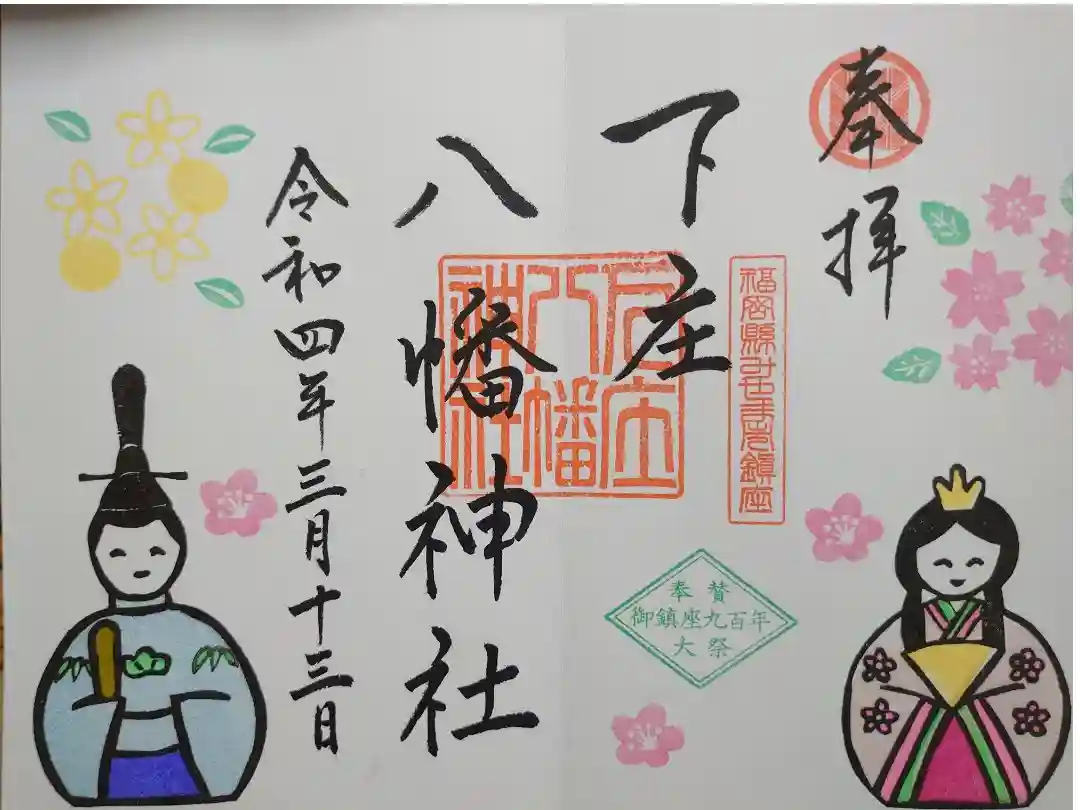 奉拝
福岡縣
鎮座
下庄
八幡神社
下庄
八幡
神社
奉賛
御鎮座九百年
大祭
令和四年三月十三日